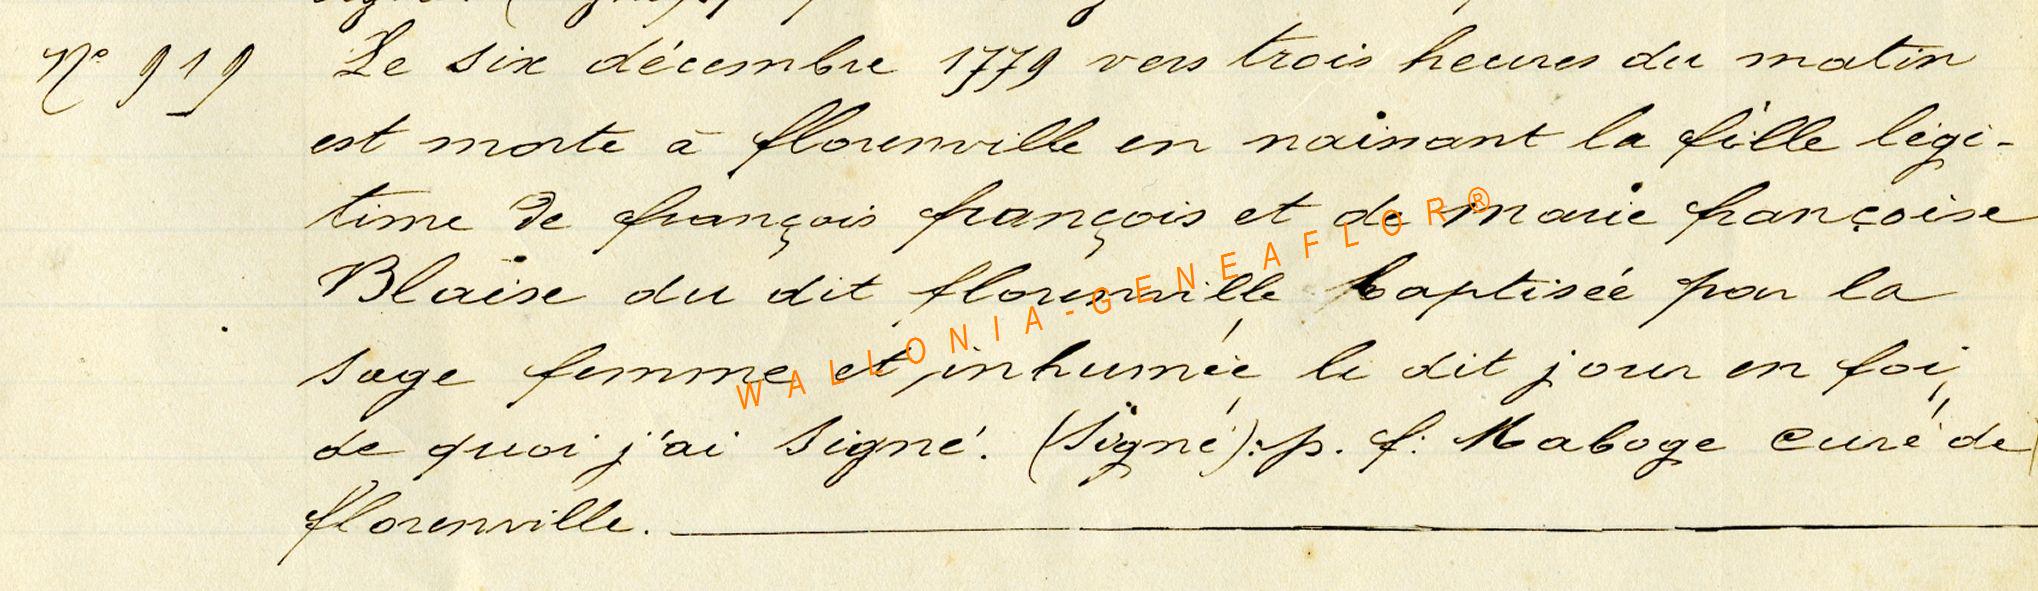 N° 919 Le six décembre 1779 vers trois heures du matin
est morte à florenville en naissant la fille légi-
time de françois françois et de marie françoise
Blaise du dit florenville baptisée par la
sage femme et inhumée le dit jour en foi
de quoi j'ai signé. (Signé): p. f. Maboge curé de
florenville.
WALLONIA-GENEAFLOR®